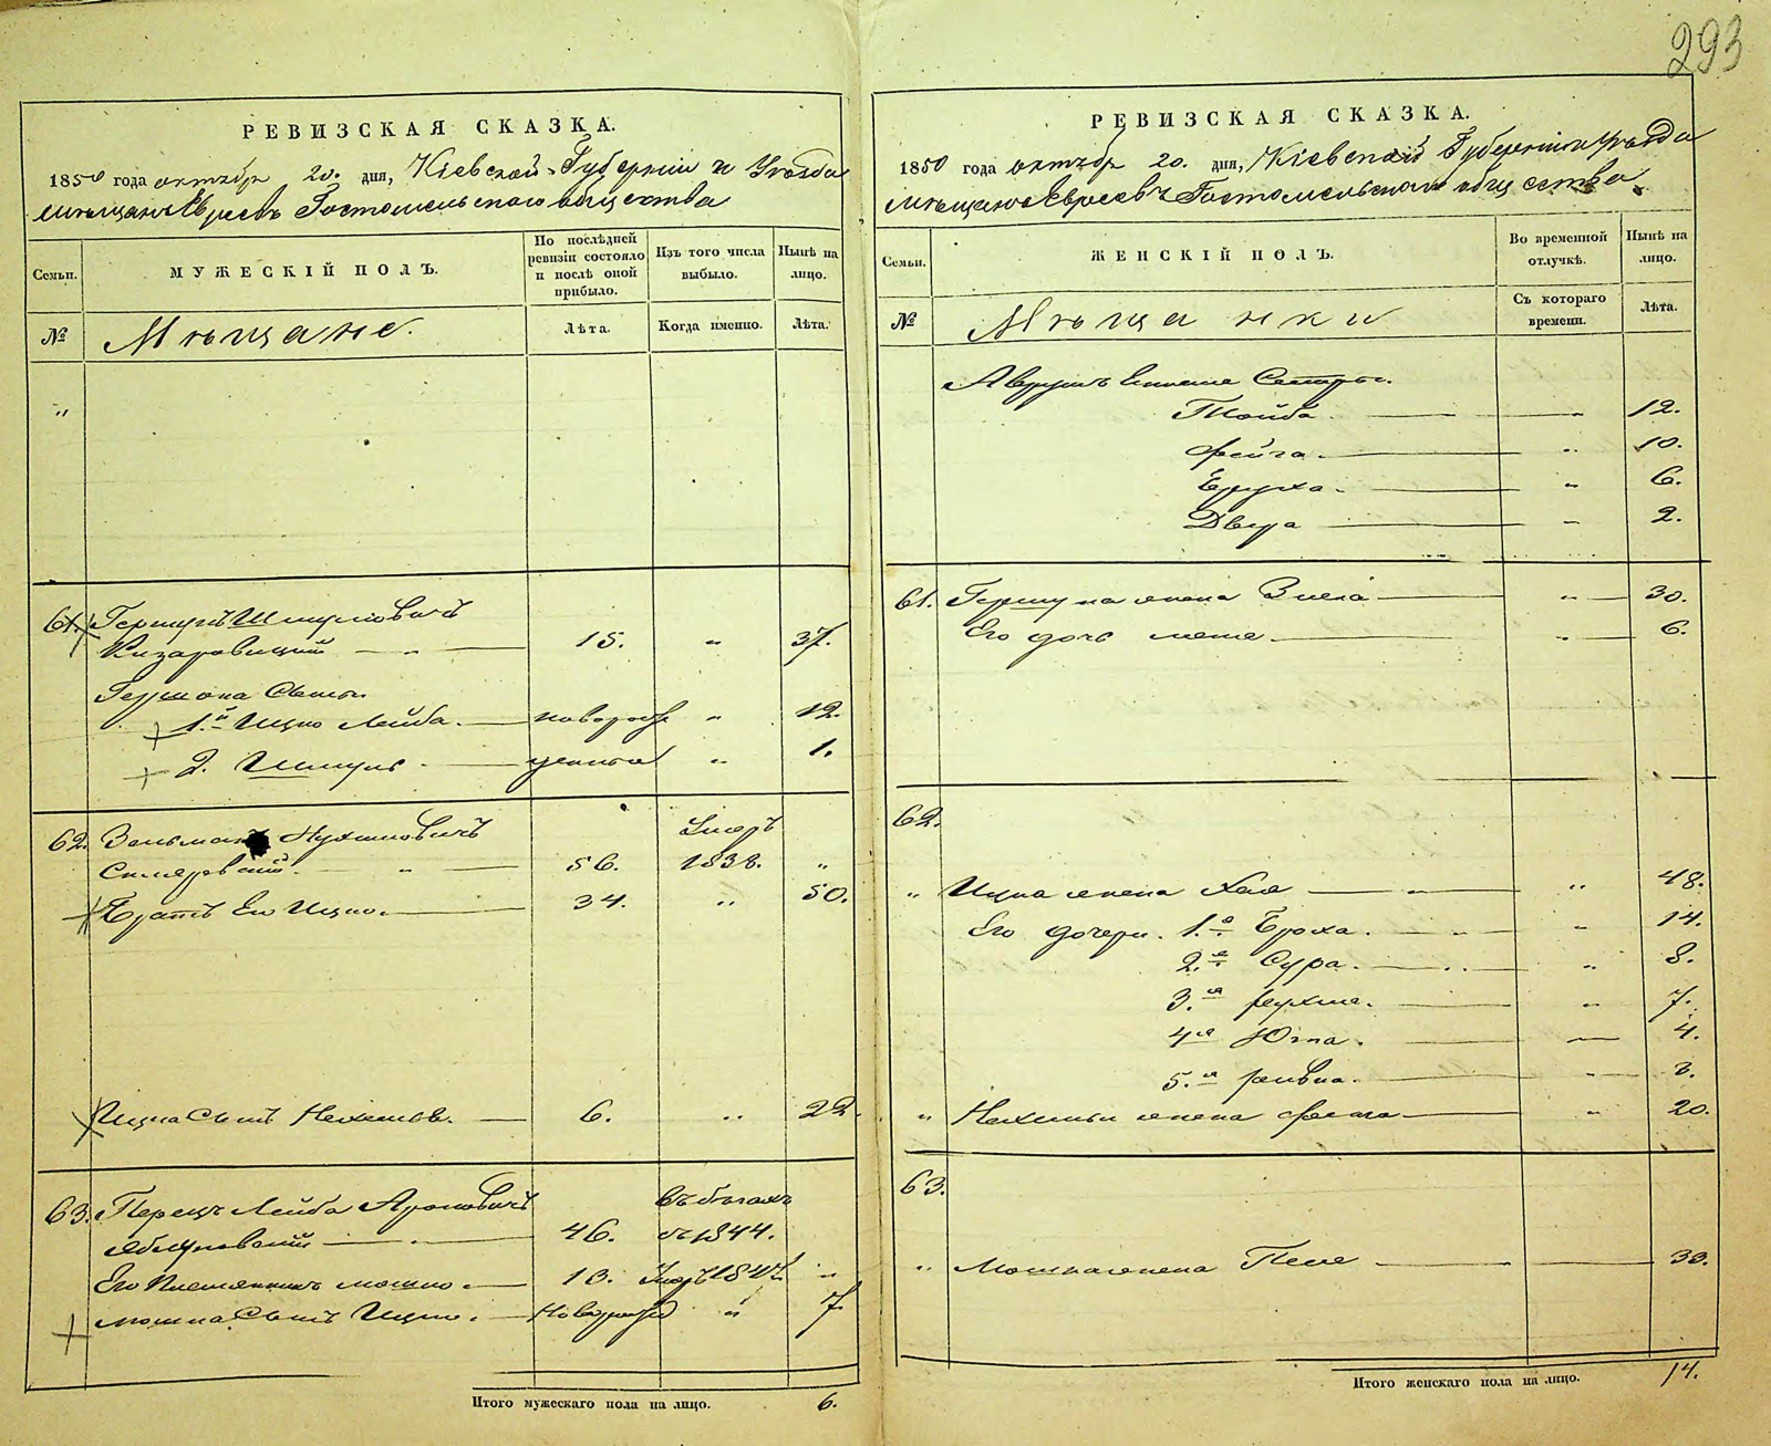 293
РЕВИЗСКАЯ СКАЗКА.
1850 года октября 20. дня, Кіевской Губерніи и Уѣзда
мѣщанъ Евреевъ Гостомельского общества
Семьи.
МУЖЕСКІЙ ПОЛЪ.
По послѣдней ревизіи состояло и послѣ оной прибыло.
Изъ того числа выбыло.
Нынѣ на лицо.
№
Мѣщане.
Лѣта.
Когда именно.
Лѣта.
"
61. Гершунъ Шмулiовичъ
15. " 37.
Гершона Сыны
1.й Ицко Лейба. новорож " 12.
2. Шмуль " 1.
62. Зельманъ Нухимовичъ Умеръ
56. 1838. "
Братъ Его Ицко. 34. " 50.
Ицка Сынъ 6. " 22
63. Перецъ Лейба Ароновичъ въ бѣгахъ
46. съ 1844.
Его Племянникъ Мошко. 13. Умеръ 1847 "
Мошка Сынъ Ицко. Новорож " 7
Итого мужескаго пола на лицо. 6.
РЕВИЗСКАЯ СКАЗКА.
1850 года октября 20. дня, Кіевской Губерніи и Уѣзда
мѣщанъ Евреевъ Гостомельского общества
Семьи.
ЖЕНСКІЙ ПОЛЪ.
Во временной отлучкѣ.
Нынѣ на лицо.
№
Мѣщанки
Съ котораго времени.
Лѣта.
Сестры.
Тойба 12.
Фейга. " 10.
Бруха. " 6.
Двера 2.
61. Гершуна жена " 30.
Его дочь " 6.
62.
" Ицка жена Хая " 48.
Его дочери. 1.я Броха. " 14.
2.я Сура. " 8.
3.я Рухля. " 7.
4я Юта. 4.
5.я
" жена " 20.
63.
" Мошка жена Песе 33.
Итого женскаго пола на лицо. 14.